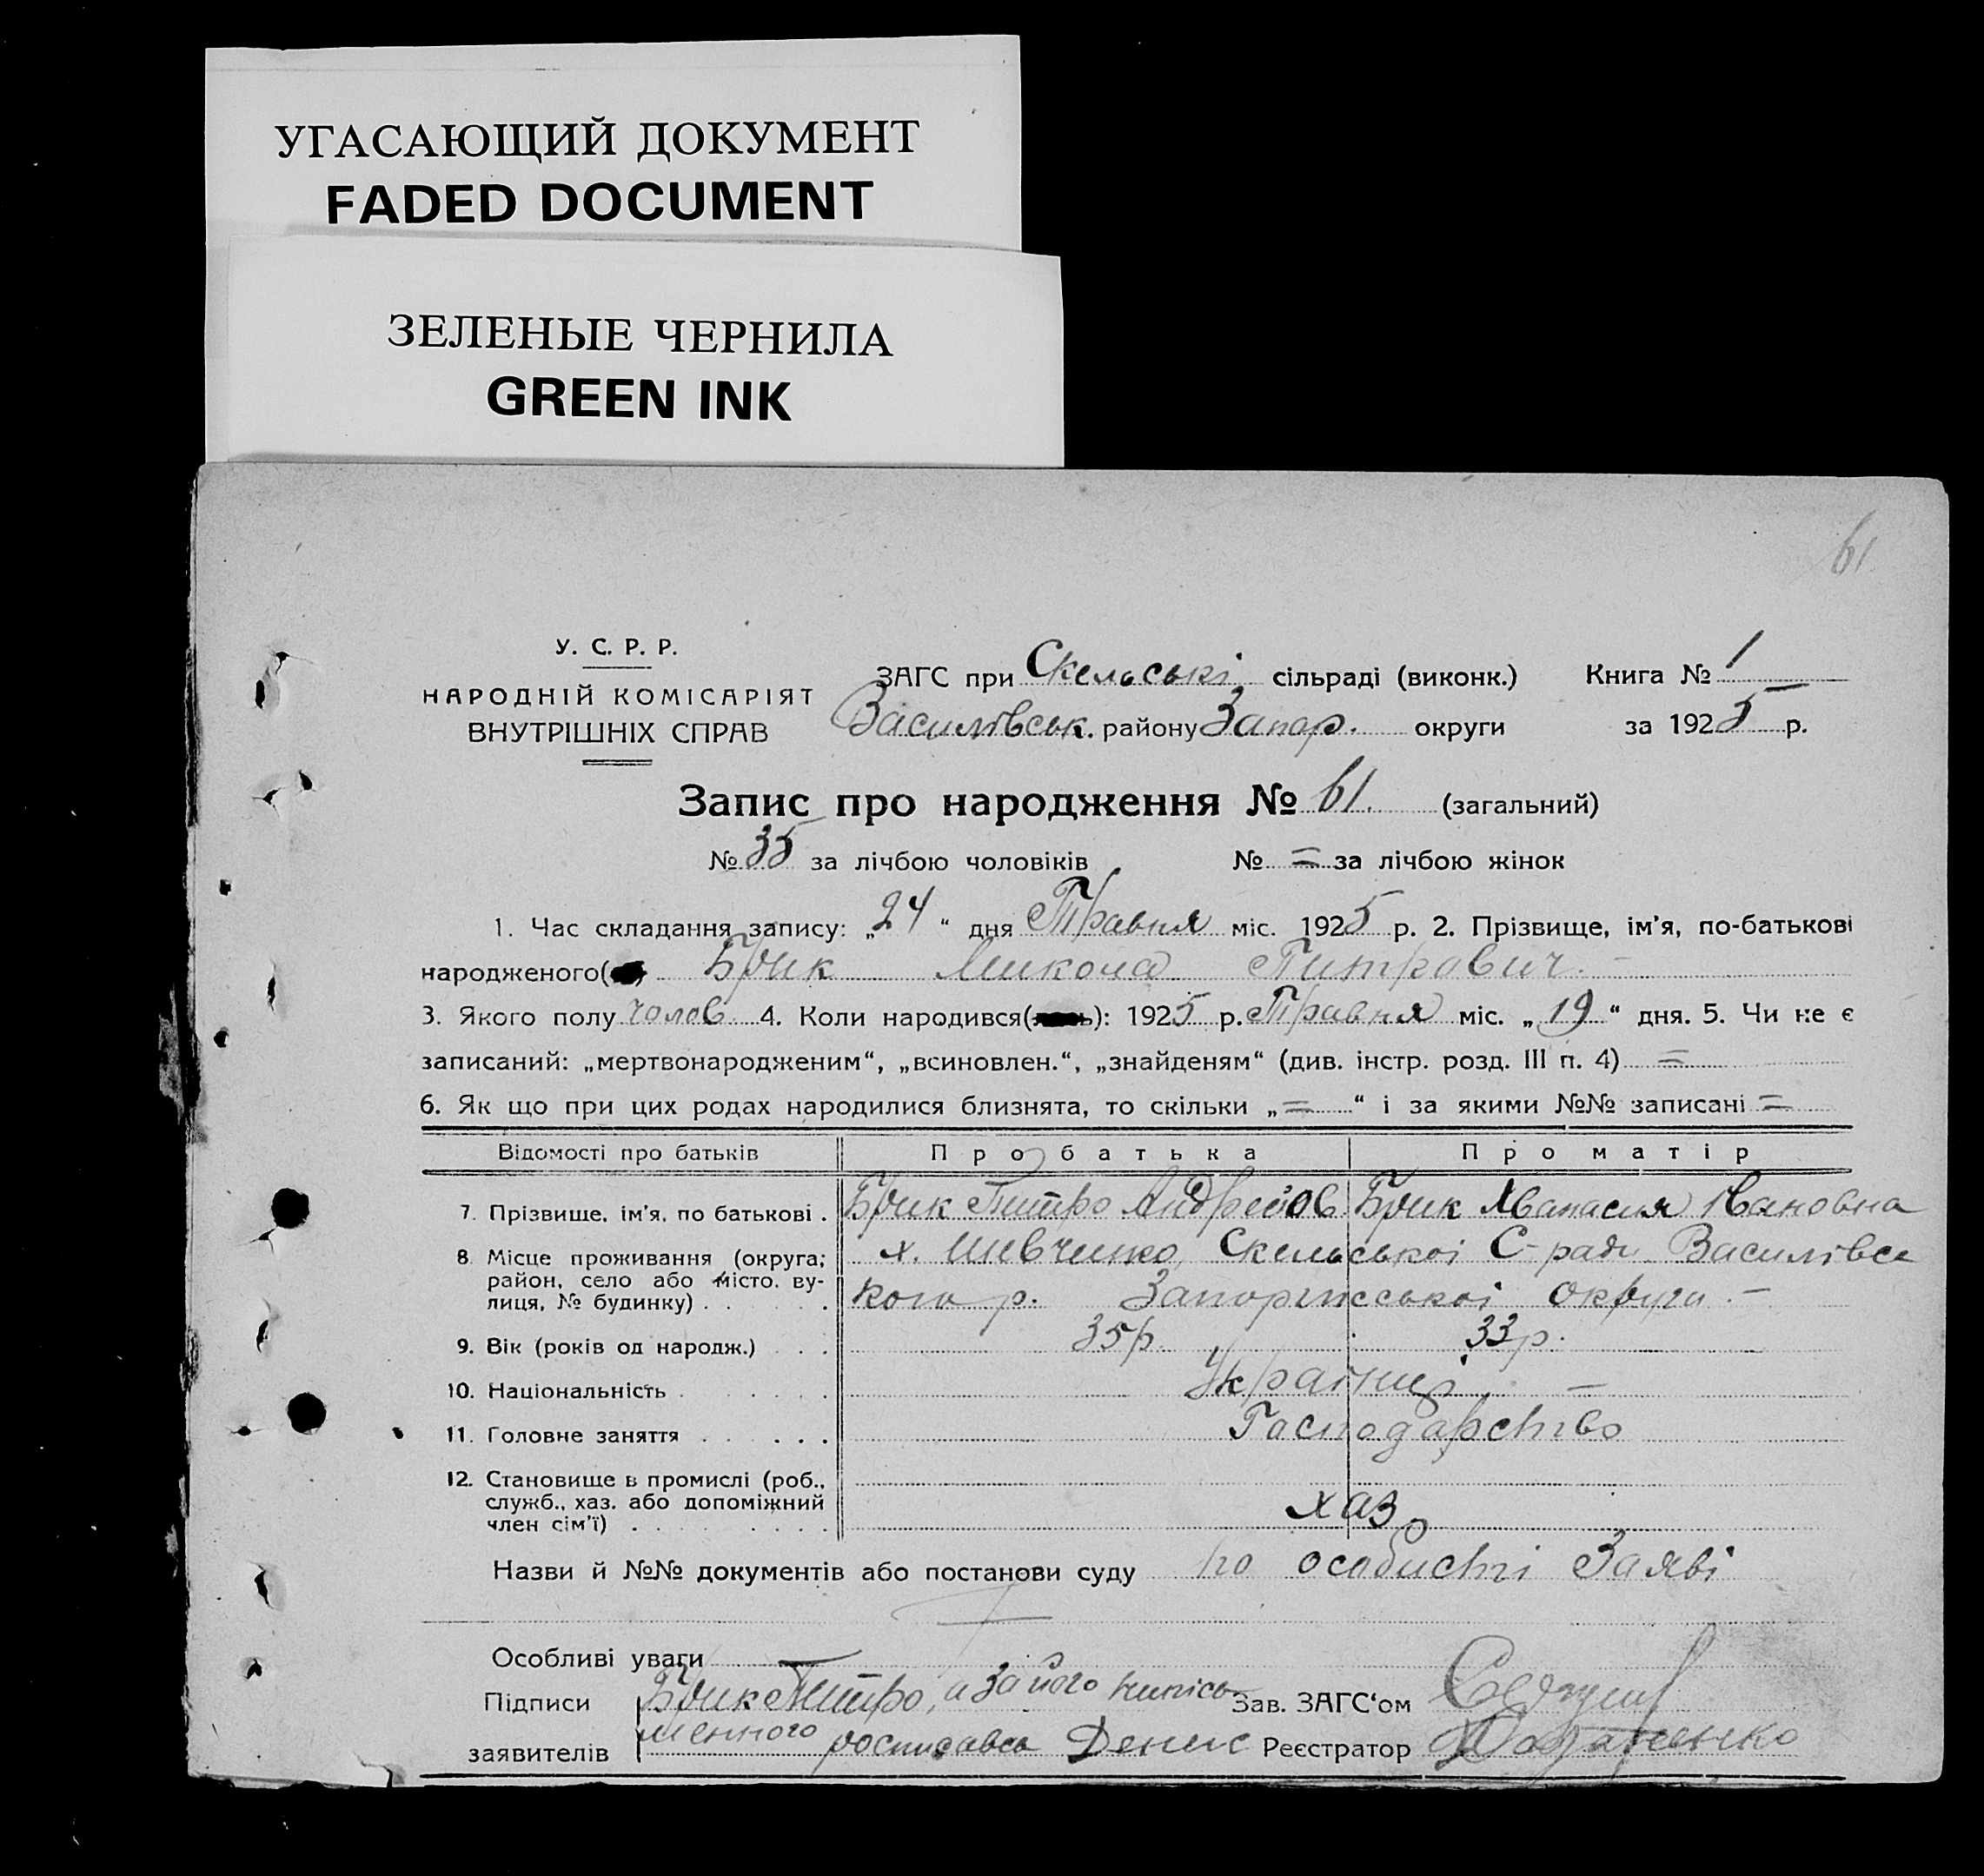 УГАСАЮЩИЙ ДОКУМЕНТ
FADED DOCUMENT
ЗЕЛЕНЫЕ ЧЕРНИЛА
GREEN INK
61
У. С. Р. Р.
НАРОДНІЙ КОМІСАРІЯТ
ВНУТРІШНІХ СПРАВ
ЗАГС при Скельські сільраді (виконк.) Книга № 1
Василівськ. району Запор. округи за 1925 р.
Запис про народження № 61. (загальний)
№ 35 за лічбою чоловіків № = за лічбою жінок
1. Час складання запису: „24“ дня Травня міс. 1925 р. 2. Прізвище, ім'я, по-батькові
народженого( Брик Микола Питрович. –
3. Якого полу чолов. 4. Коли народився( ): 1925 р. Травня міс. „19“ дня. 5. Чи не є
записаний: „мертвонародженим“, „всиновлен.“, „знайденям“ (див. інстр. розд. III п. 4) =
6. Як що при цих родах народилися близнята, то скільки „=“ і за якими №№ записані =
Відомості про батьків Про батька Про матір
7. Прізвище, ім'я, по батькові . Брик Питро Андреїов. Брик Ивanасия Ивановна
8. Місце проживання (округа; х. Шивченко, Скельської С-ради Василівсь
район, село або місто, ву-
лиця, № будинку) . . . кого р. Запоріжської округи. –
9. Вік (років од народж.) . . . 35 р. 33 р.
10. Національність . . . Українці. –
11. Головне заняття . . . Господарство
12. Становище в промислі (роб.,
служб., хаз. або допоміжний
член сім'ї) . . . хаз.
Назви й №№ документів або постанови суду по особисті Заяві
Особливі уваги
Підписи Брик Питро, а за його нипісь Зав. ЗАГС'ом
заявителів менного росписавсь Денис Реєстратор